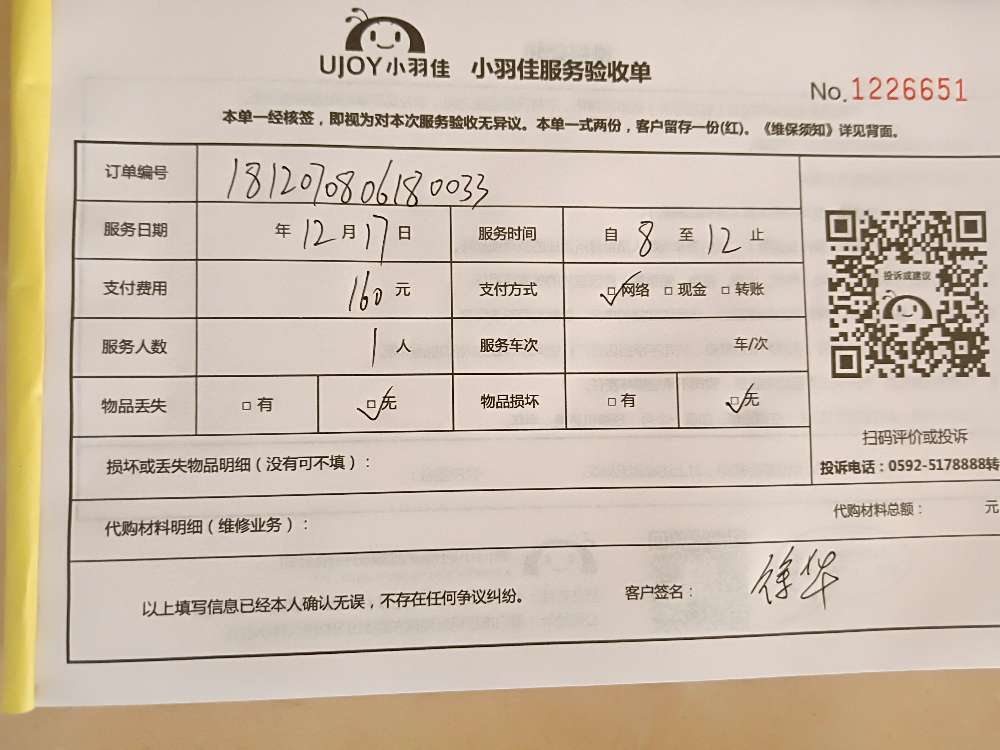 UJOY小羽佳 小羽佳服务验收单
No.1226651
本单一经核签，即视为对本次服务验收无异议。本单一式两份，客户留存一份(红)。《维保须知》详见背面。
订单编号 1812070806180033
服务日期 年 12 月 17 日 服务时间 自 8 至 12 止
支付费用 160 元 支付方式 ☑网络 □现金 □转账
服务人数 1 人 服务车次 车/次
物品丢失 □有 ☑无 物品损坏 □有 ☑无
投诉或建议
扫码评价或投诉
投诉电话：0592-5178888转
损坏或丢失物品明细（没有可不填）：
代购材料明细（维修业务）： 代购材料总额： 元
以上填写信息已经本人确认无误，不存在任何争议纠纷。 客户签名： 徐华